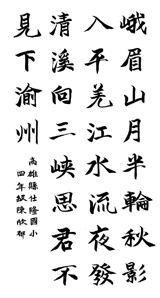 峨眉山月半輪秋影
入平羌江水流夜發
清溪向三峽思君不
見下渝州
高雄縣仕隆國小
四年級陳欣郁